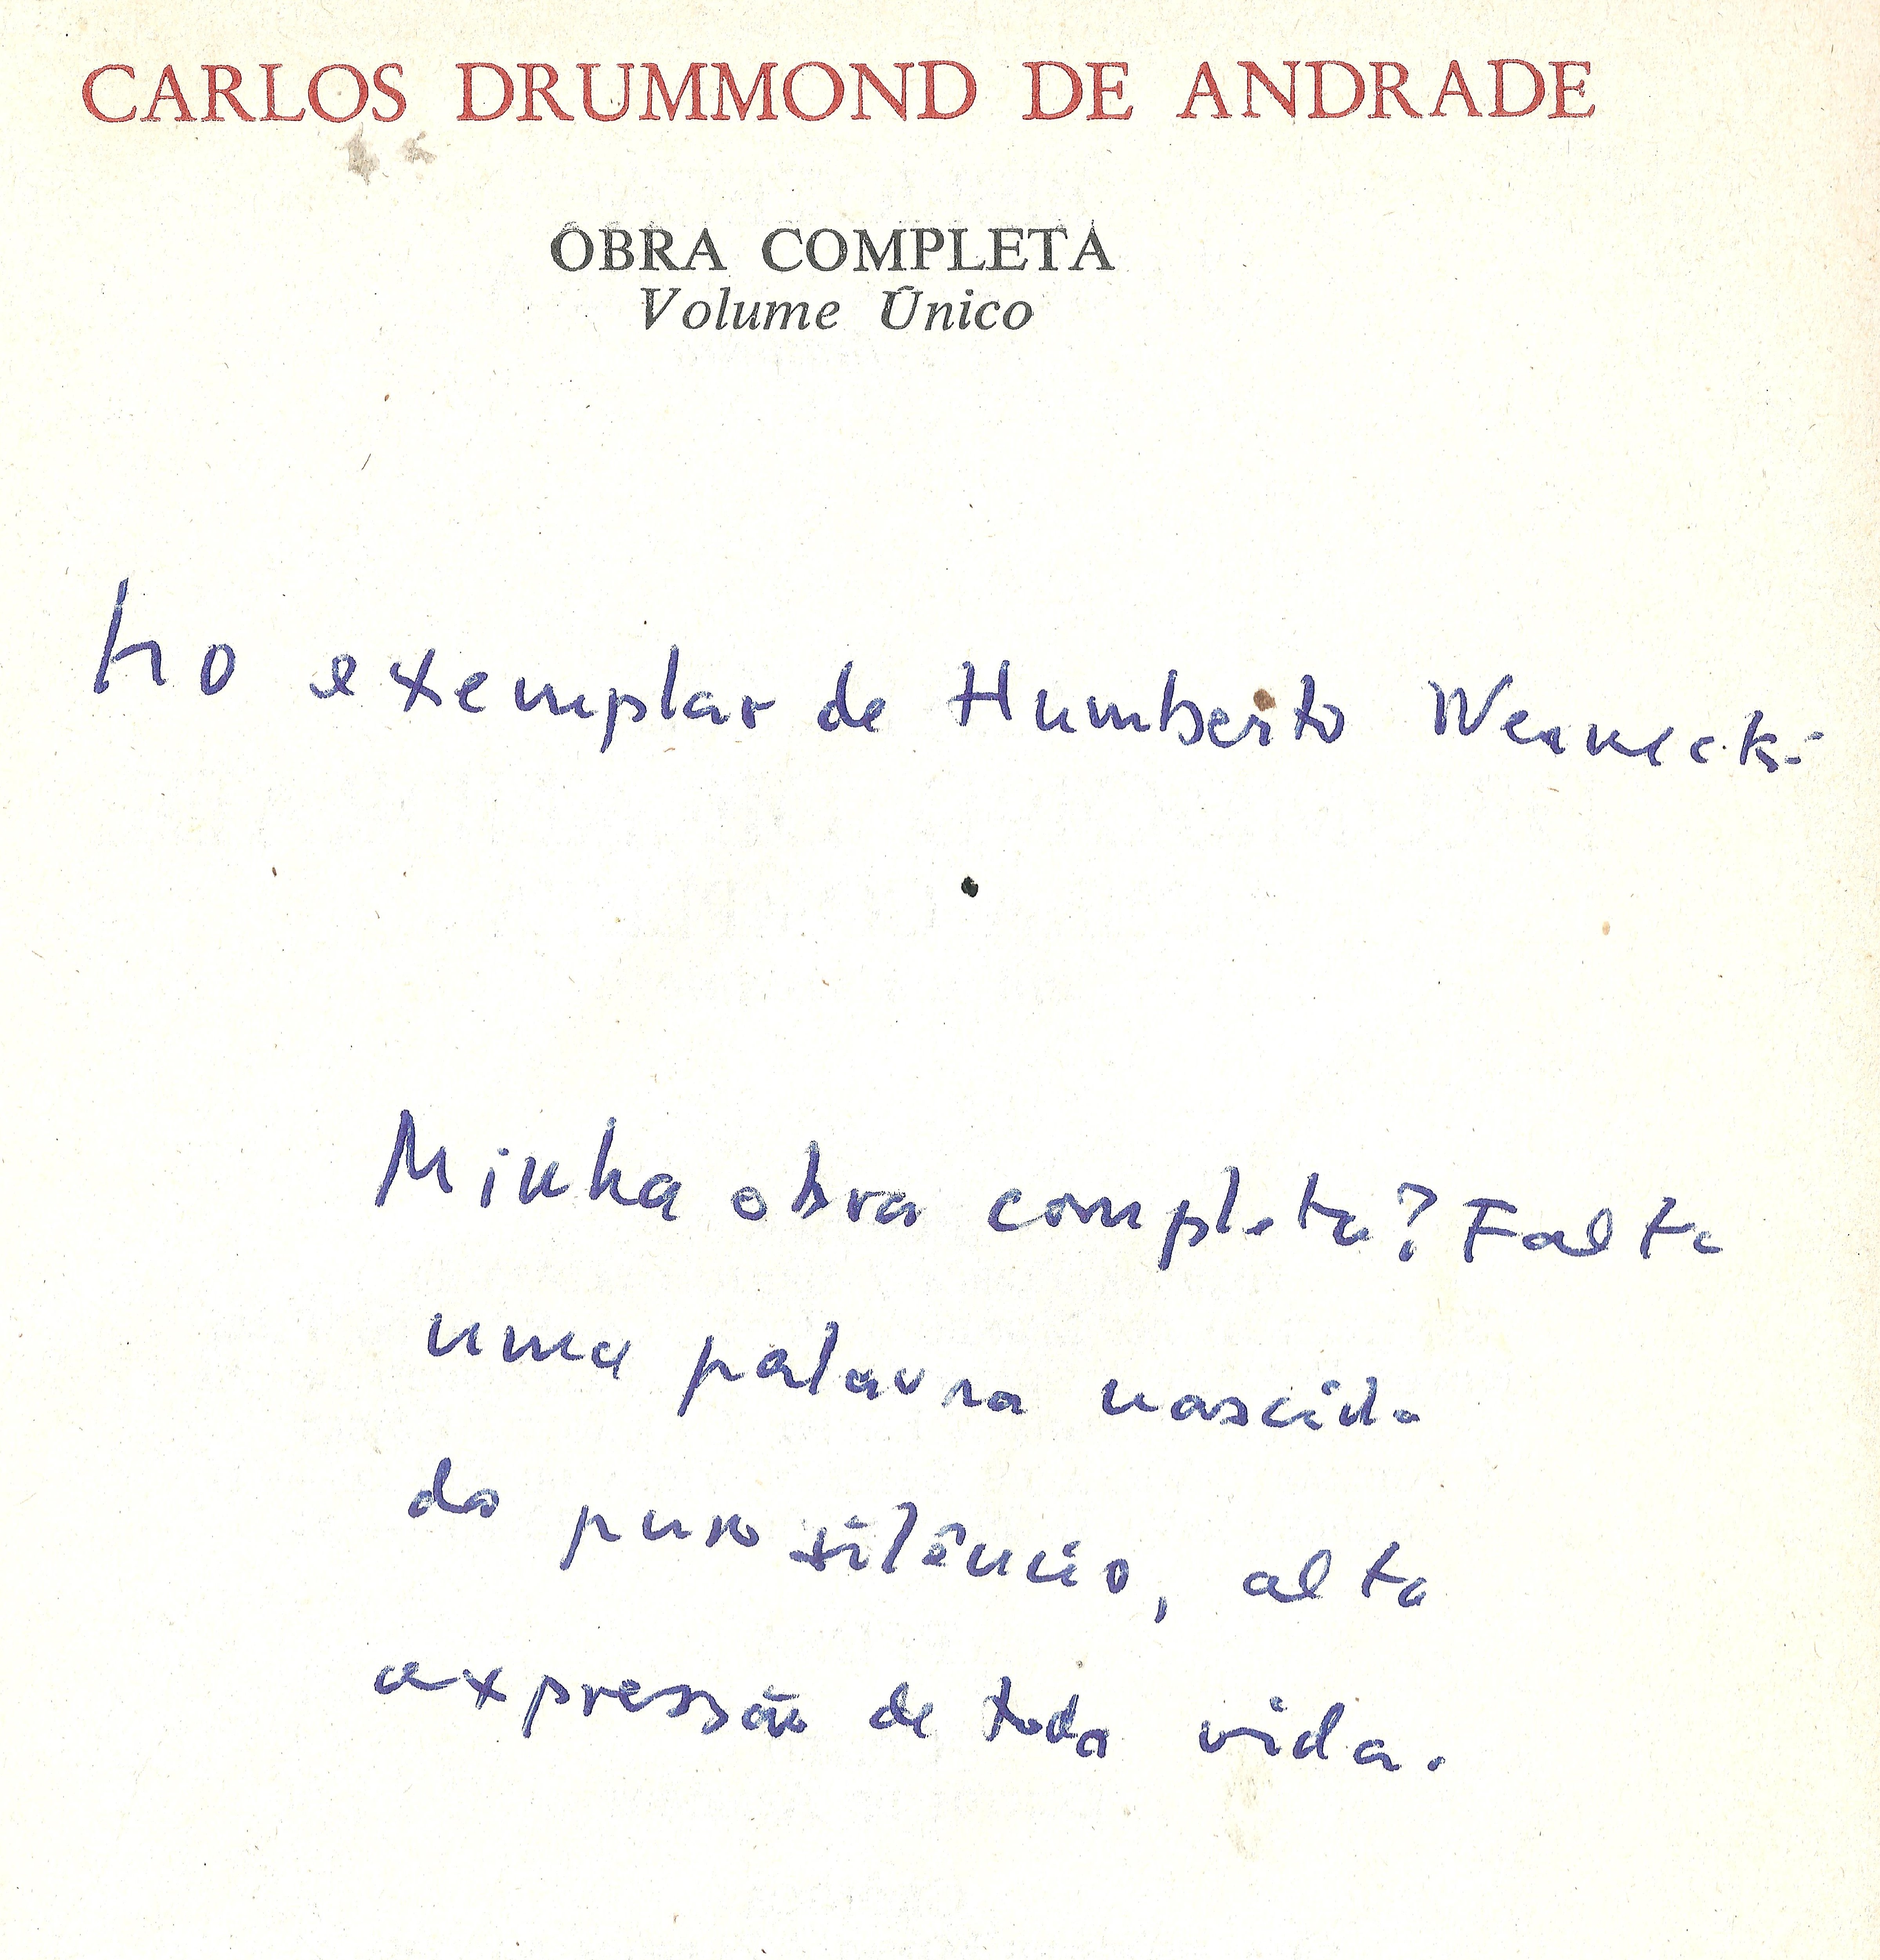 CARLOS DRUMMOND DE ANDRADE
OBRA COMPLETA
Volume Único
No exemplar de Humberto Werneck:
Minha obra completa? Falta
uma palavra nascida
do puro silêncio, alta
expressão de toda vida.